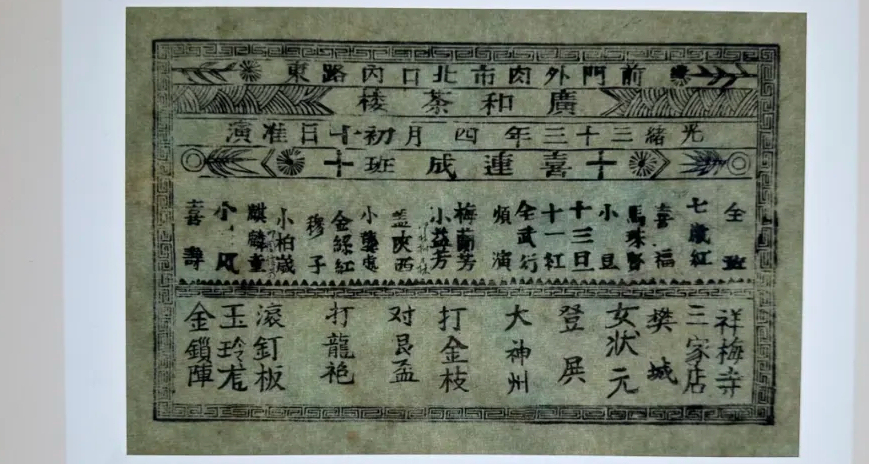 前門外肉市北口內路東
廣和茶樓
光緒三十三年四月初十日准演
喜連成班
全班
七歲紅
喜福
馬珠
小旦
十三旦
十一紅
全武行
煩演
梅蘭芳
小益芳
蓋陝西
小
金綠紅
穆子
小柏歲
麒麟童
小
喜壽
祥梅寺
三家店
樊城
女狀元
登
大神州
打金枝
对
打龍袍
滾釘板
玉玲
金鎖陣